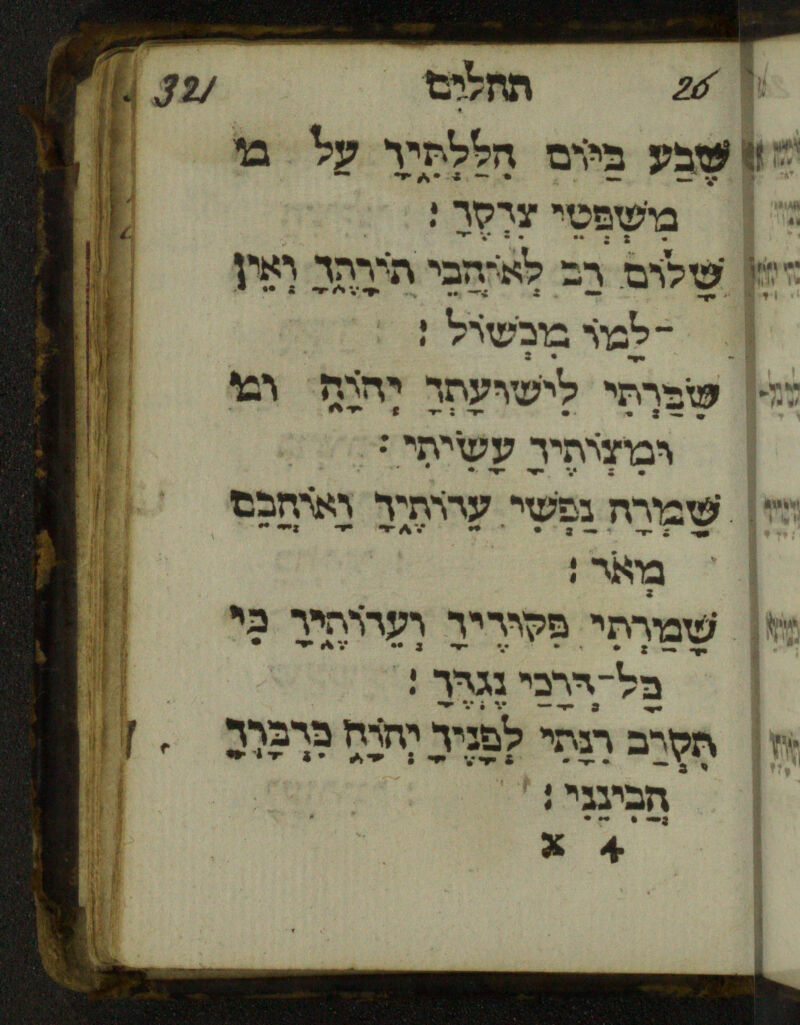 321 תהלים 26
שֶׁבַע בַּיּוֹם הִלַּלְתִּיךָ עַל מ
מִשְׁפְּטֵי צִדְקֶךָ :
שָׁלוֹם רַב לְאוֹהֲבֵי תוֹרָתֶךָ וְאֵין
־לָמוֹ מִכְשׁוֹל :
שִׂבַּרְתִּי לִישׁוּעָתְךָ יְהוָֹה ומ
וּמִצְוֹתֶיךָ עָשִׂיתִי :
שָׁמְרָה נַפְשִׁי עֵדוֹתֶיךָ וָאוֹהֲבֵם
מְאֹד :
שָׁמַרְתִּי פִקּוּדֶיךָ וְעֵדוֹתֶיךָ כִּי
כָל־דְּרָכַי נֶגְדֶּךָ :
תִּקְרַב רִנָּתִי לְפָנֶיךָ יְהוָֹה כִּדְבָרְךָ
הֲבִינֵנִי :
X 4